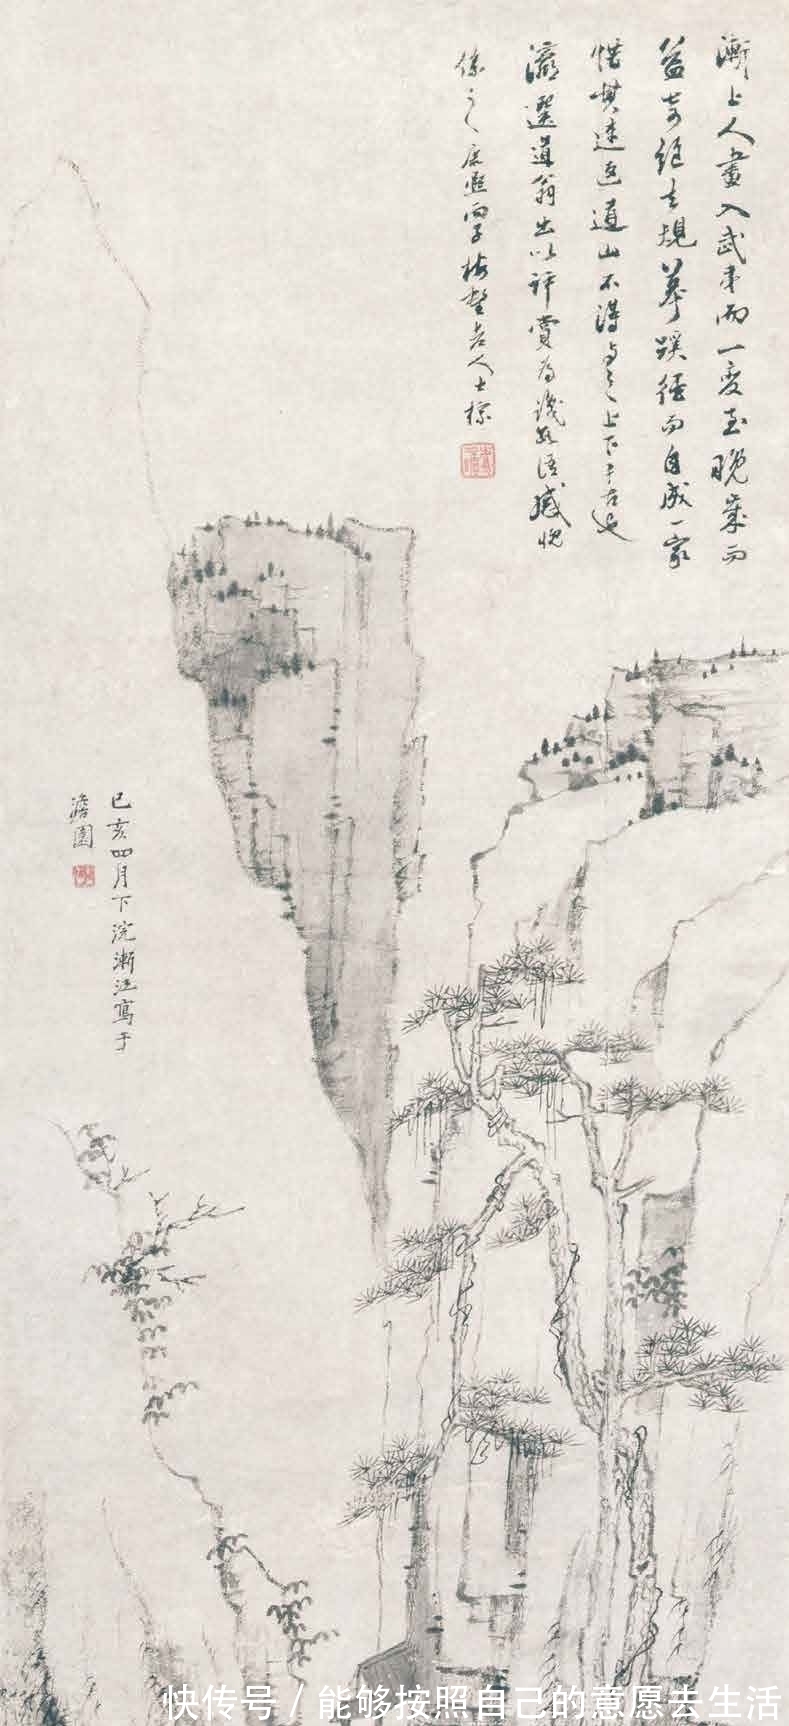 漸上人畫入武夷而一變至晚歲而
益奇絕去規摹蹊徑而自成一家
惜其速返道山不得與之上下千古也
瀛選道翁出以評賞為識數語感愧
係之康熙丙子梅壑老人士標
己亥四月下浣漸江寫于
澹園
快传号/能够按照自己的意愿去生活